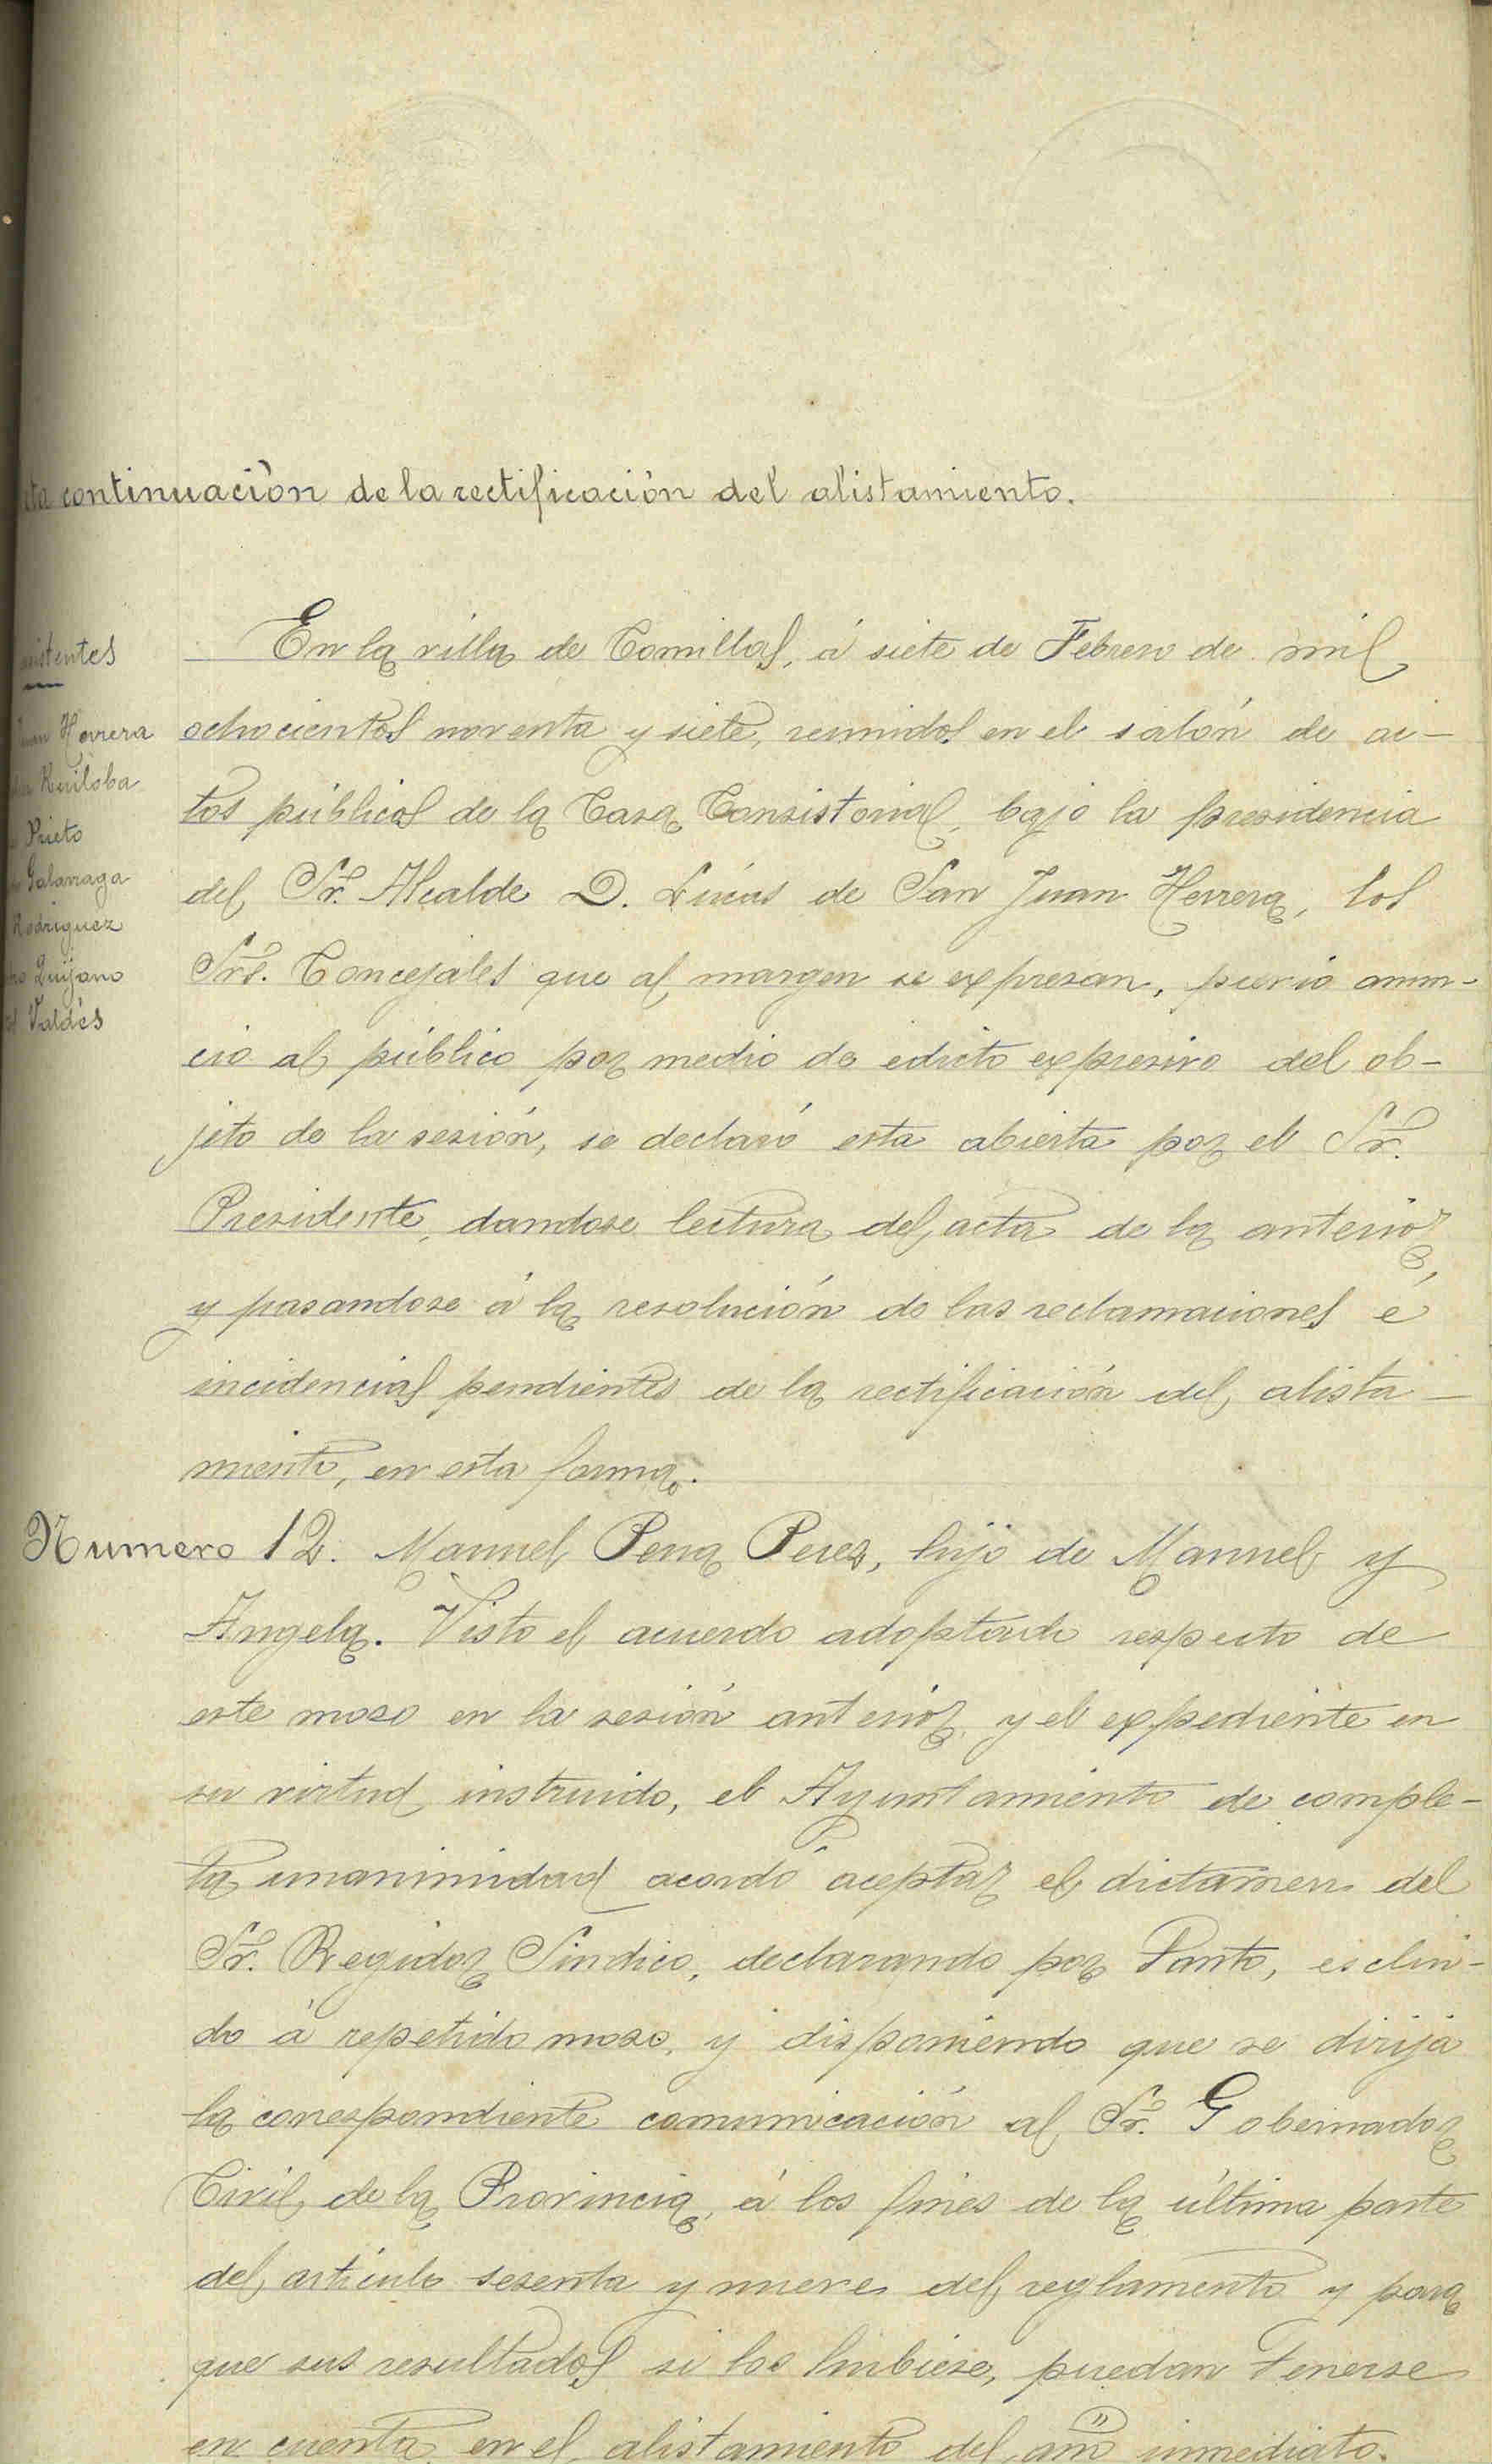 continuación de la rectificación del alistamiento.
Herrera
Ruiloba
Prieto
Galarraga
Rodriguez
Quijano
Valdés
En la villa de Comillas, á siete de Febrero de mil
ochocientos noventa y siete, reunidos en el salón de ac-
tos públicos de la Casa Consistorial, bajo la presidencia
del Sr. Alcalde D. Lucas de San Juan Herrera, los
Srs. Concejales que al margen se expresan, previo anun-
cio al público por medio de edicto expresivo del ob-
jeto de la sesión, se declaró esta abierta por el Sr.
Presidente, dandose lectura del acta de la anterior,
y pasandose á la resolución de las reclamaciones é
incidencias pendientes de la rectificación del alista-
miento, en esta forma.
Numero 12. Manuel Pena Perez, hijo de Manuel y
Angela. Visto el acuerdo adoptado respecto de
este mozo en la sesión anterior y el expediente en
su virtud instruido, el Ayuntamiento de comple-
ta unanimidad acordó aceptar el dictamen del
Sr. Regidor Sindico, declarando por tanto, esclui-
do á repetido mozo, y disponiendo que se dirija
la correspondiente comunicación al Sr. Gobernador
Civil de la Provincia, á los fines de la última parte
del artículo sesenta y nueve del reglamento y para
que sus resultados si los hubiese, puedan tenerse
en cuenta en el alistamiento del año inmediato.